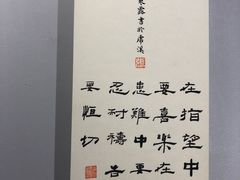 露書於溪
在指望中
要喜樂在
患難中要
忍耐禱告
要恒切